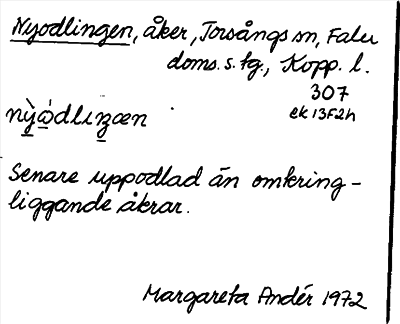 Nyodlingen, åker, Torsångs sn, Falu
doms. s. tg., Kopp. l.
307
ek 13F2h
nỳódlıŋæn
Senare uppodlad än omkring-
liggande åkrar.
Margareta Andér 1972